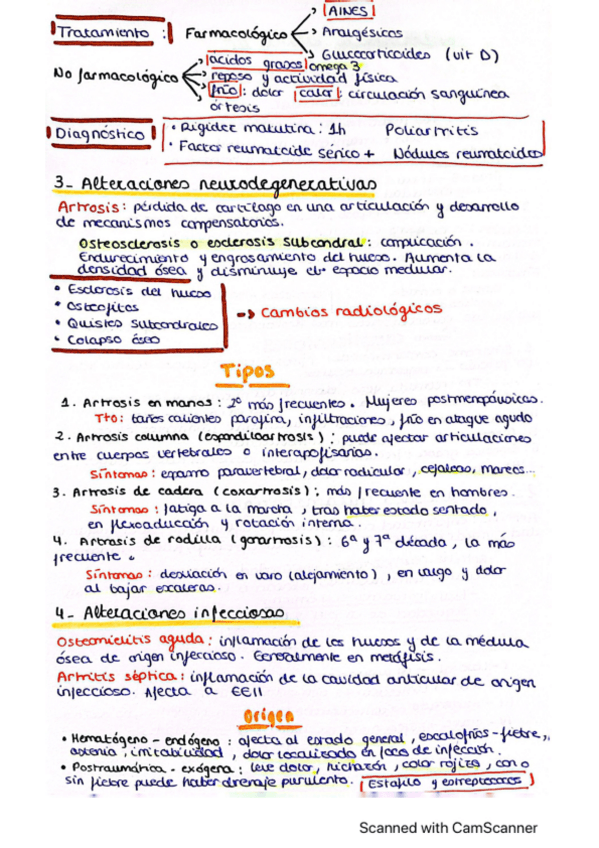 AINES
Tratamiento : Farmacológico Analgésicos
Glucocorticoides (vit D)
ácidos grasos omega 3
No farmacológico reposo y actividad física
frío: dolor calor: circulación sanguínea
órtesis
Diagnóstico • Rigidez matutina: 1h Poliartritis
• Factor reumatoide sérico + Nódulos reumatoides
3- Alteraciones neurodegenerativas
Artrosis: pérdida de cartílago en una articulación y desarrollo
de mecanismos compensatorios.
Osteosclerosis o esclerosis subcondral: complicación.
Endurecimiento y engrosamiento del hueso. Aumenta la
densidad ósea y disminuye el espacio medular.
• Esclerosis del hueso
• Osteofitos
• Quistes subcondrales
• Colapso óseo
-> Cambios radiológicos
Tipos
1. Artrosis en manos: 2º más frecuentes. Mujeres postmenopáusicas.
Tto: baños calientes parafina, infiltraciones, frío en ataque agudo
2. Artrosis columna (espondiloartrosis): puede afectar articulaciones
entre cuerpos vertebrales o interapofisarias.
Síntomas: espasmo paravertebral, dolor radicular, cefaleas, mareos...
3. Artrosis de cadera (coxartrosis): más frecuente en hombres.
Síntomas: fatiga a la marcha, tras haber estado sentado,
en flexoaducción y rotación interna.
4. Artrosis de rodilla (gonartrosis): 6ª y 7ª década, la más
frecuente.
Síntomas: desviación en varo (alejamiento), en valgo y dolor
al bajar escaleras.
4- Alteraciones infecciosas
Osteomielitis aguda: inflamación de los huesos y de la médula
ósea de origen infeccioso. Generalmente en metáfisis.
Artritis séptica: inflamación de la cavidad articular de origen
infeccioso. Afecta a EEII
Origen
• Hematógeno - endógeno: afecta al estado general, escalofríos-fiebre,
astenia, irritabilidad, dolor localizado en foco de infección.
• Postraumática - exógena: leve dolor, hichazón, color rojizo, con o
sin fiebre puede haber drenaje purulento. Estafilo y estreptococos
Scanned with CamScanner